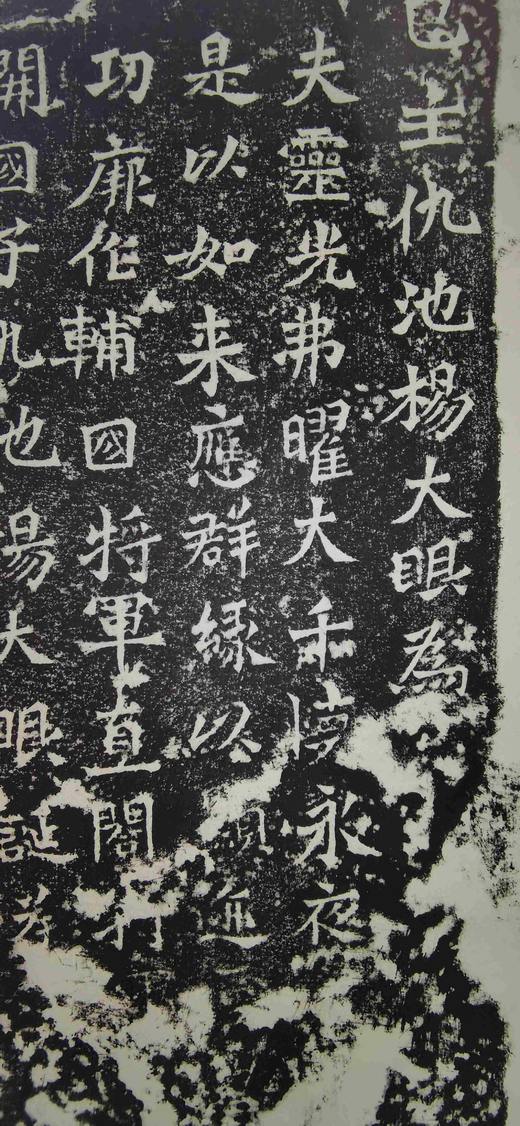 邑主仇池楊大眼為
夫靈光弗曜大千懷永夜
是以如来應群緣以顯迹
功廓作輔國将軍直閤将
開國子仇也楊大眼誕